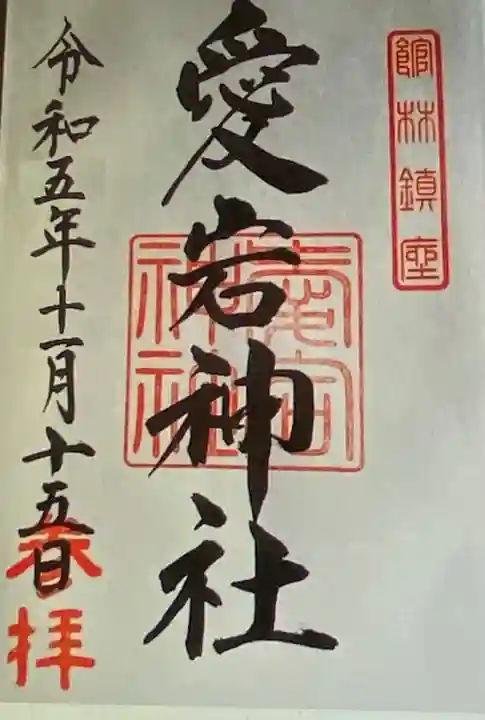 館林鎮座
愛宕神社
愛宕
神社
令和五年十一月十五日
奉拝